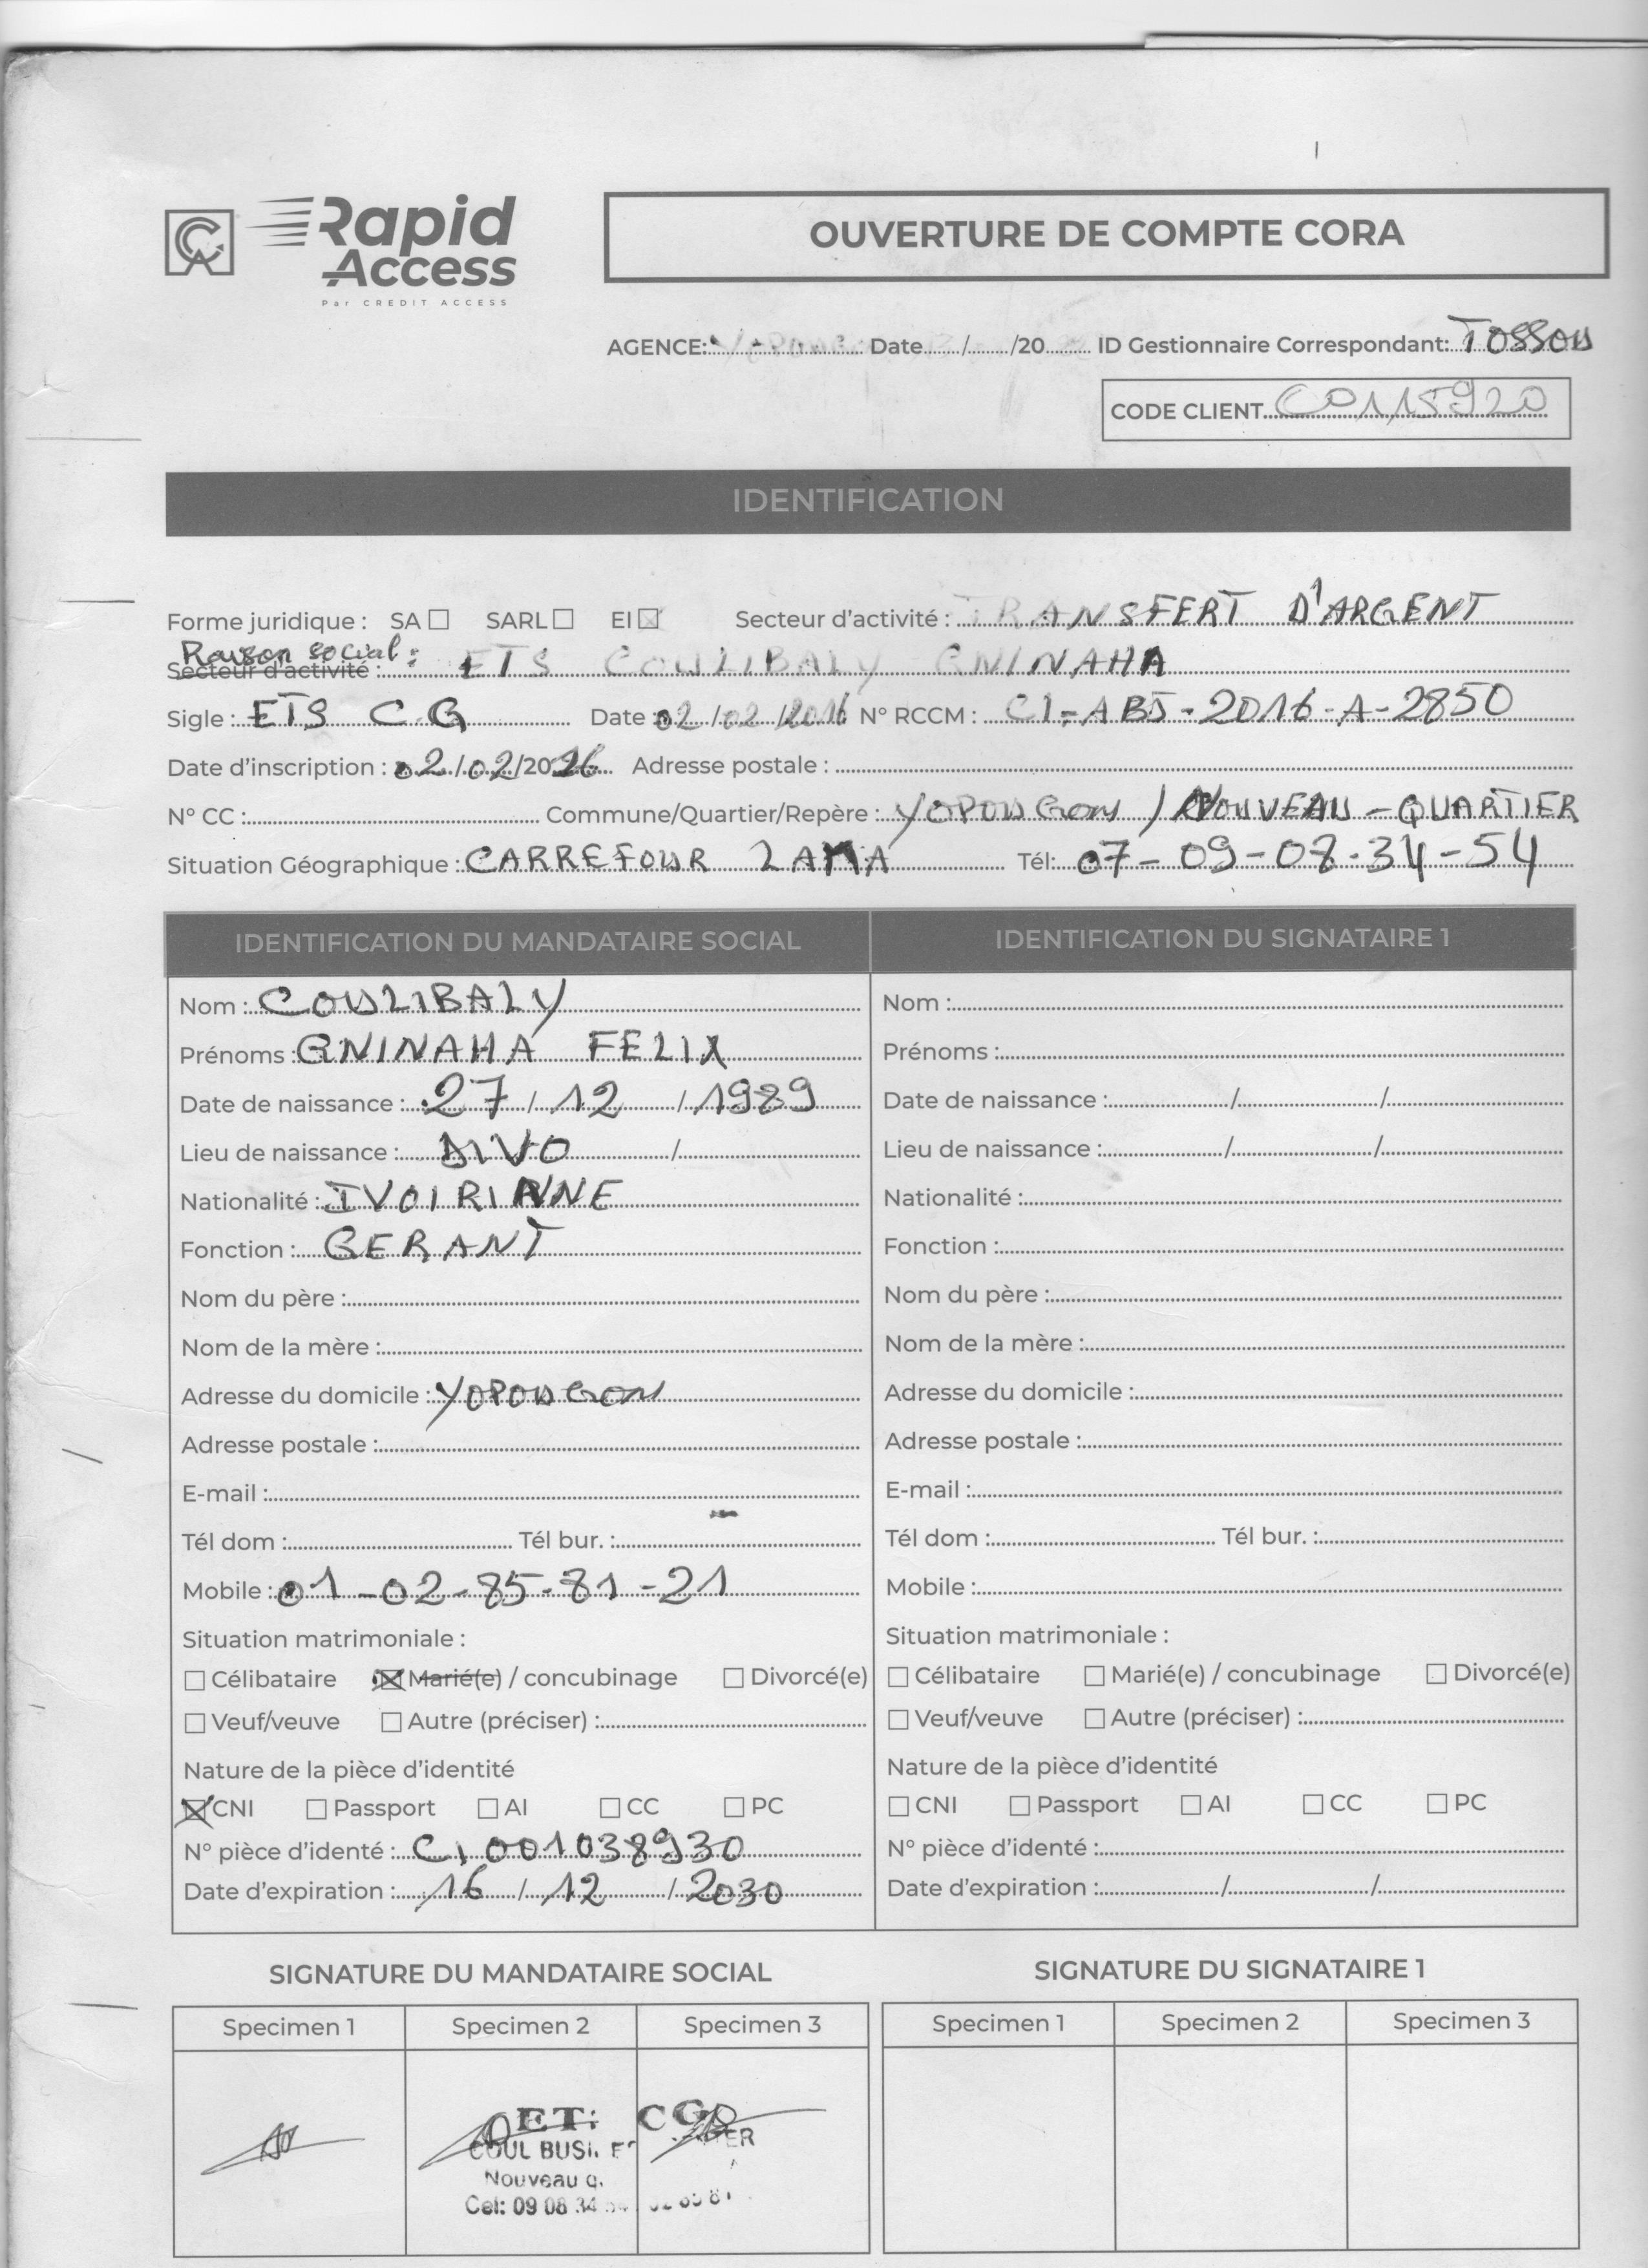 Rapid
Access
Par CREDIT ACCESS
OUVERTURE DE COMPTE CORA
AGENCE: YOPOUGON Date / /20 ID Gestionnaire Correspondant: TOSSOU
CODE CLIENT C0115920
IDENTIFICATION
Forme juridique : SA ☐ SARL ☐ EI ☒ Secteur d'activité : TRANSFERT D'ARGENT
Raison social :
Secteur d'activité : ETS COULIBALY GNINAHA
Sigle : ETS C.G Date : 02/02/2016 N° RCCM : CI-ABJ-2016-A-2850
Date d'inscription : 02/02/2016 Adresse postale :
N° CC : Commune/Quartier/Repère : YOPOUGON / NOUVEAU-QUARTIER
Situation Géographique : CARREFOUR LAMA Tél: 07-09-08-34-54
IDENTIFICATION DU MANDATAIRE SOCIAL IDENTIFICATION DU SIGNATAIRE 1
Nom : COULIBALY Nom :
Prénoms : GNINAHA FELIX Prénoms :
Date de naissance : 27/12/1989 Date de naissance : / /
Lieu de naissance : DIVO / Lieu de naissance : / /
Nationalité : IVOIRIANNE Nationalité :
Fonction : GERANT Fonction :
Nom du père : Nom du père :
Nom de la mère : Nom de la mère :
Adresse du domicile : YOPOUGON Adresse du domicile :
Adresse postale : Adresse postale :
E-mail : E-mail :
Tél dom : Tél bur. : Tél dom : Tél bur. :
Mobile : 01-02-85-81-21 Mobile :
Situation matrimoniale : Situation matrimoniale :
☐ Célibataire ☒ Marié(e) / concubinage ☐ Divorcé(e) ☐ Célibataire ☐ Marié(e) / concubinage ☐ Divorcé(e)
☐ Veuf/veuve ☐ Autre (préciser) : ☐ Veuf/veuve ☐ Autre (préciser) :
Nature de la pièce d'identité Nature de la pièce d'identité
☒ CNI ☐ Passport ☐ AI ☐ CC ☐ PC ☐ CNI ☐ Passport ☐ AI ☐ CC ☐ PC
N° pièce d'identé : CI001038930 N° pièce d'identé :
Date d'expiration : 16/12/2030 Date d'expiration : / /
SIGNATURE DU MANDATAIRE SOCIAL SIGNATURE DU SIGNATAIRE 1
Specimen 1 Specimen 2 Specimen 3 Specimen 1 Specimen 2 Specimen 3
ET: CG
COUL BUSI
Nouveau q.
Cel: 09 08 34